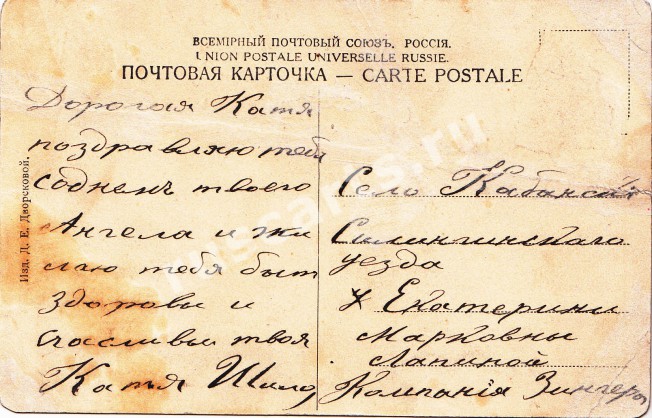 ВСЕМІРНЫЙ ПОЧТОВЫЙ СОЮЗЪ. РОССІЯ.
UNION POSTALE UNIVERSELLE RUSSIE.
ПОЧТОВАЯ КАРТОЧКА — CARTE POSTALE
Изд. Д. Е. Дворсковой.
Дорогая Катя
поздравляю тебя
соднемъ твоего
Ангела и жи
лаю тебя быт
здоровы и
счасливы твоя
Катя
Село Кабанск
Силингинскаго
уезда
Екатерини
Марковны
Лапиной
Компанія Зингеръ